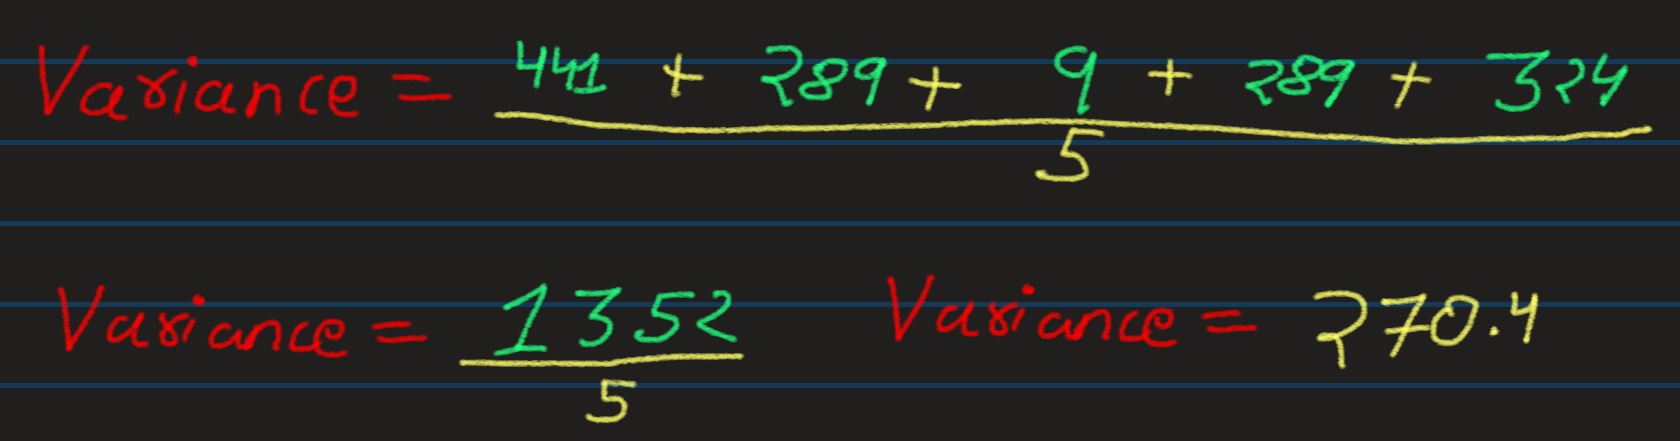 Variance = 441 + 289 + 9 + 289 + 324
5
Variance = 1352 Variance = 270.4
5